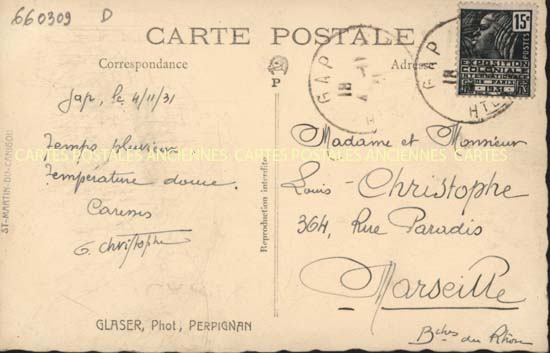 660309 D
CARTE POSTALE
Correspondance
Adres
P
GAP
18
GAP
18
HTES
15c
POSTES
EXPOSITION
COLONIALE
INTERNATIONALE
PARIS
1931
Gap, le 4/11/31
Temps pluvieux
Température douce.
Caresses
G. Christophe
CARTES POSTALES ANCIENNES CARTES POSTALES ANCIENNES CARTES POSTALES ANCIENNES
Madame et Monsieur
Louis Christophe
364, Rue Paradis
Marseille
Bches du Rhône
ST-MARTIN-DU-CANIGOU
Reproduction interdite
GLASER, Phot, PERPIGNAN